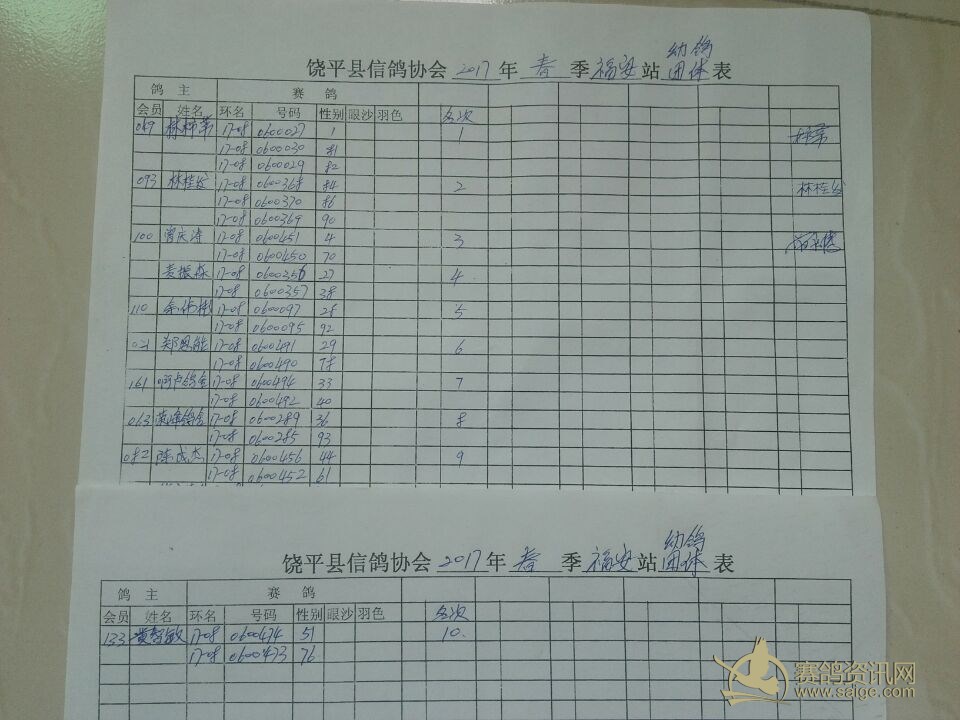 幼鸽
饶平县信鸽协会 2017 年 春 季 福安 站 团体 表
鸽 主 赛 鸽
会员 姓名 环名 号码 性别 眼沙 羽色 名次
049 林 17-08 0600027 1 1
17-08 0600030 81
17-08 0600029 82
093 林桂 17-08 0600368 84 2 林桂
17-08 0600370 86
17-08 0600369 90
100 曾庆涛 17-08 0600451 4 3
17-08 0600450 70
麦振森 17-08 0600356 27 4
17-08 0600357 38
110 余伟彬 17-08 0600097 28 5
17-08 0600095 92
021 郑 17-08 0600491 29 6
17-08 0600490 78
161 啊卢鸽舍 17-08 0600494 33 7
17-08 0600492 40
063 鸽舍 17-08 0600289 36 8
17-08 0600285 93
082 陈成杰 17-08 0600456 44 9
17-08 0600452 61
幼鸽
饶平县信鸽协会 2017 年 春 季 福安 站 团体 表
鸽 主 赛 鸽
会员 姓名 环名 号码 性别 眼沙 羽色 名次
133 黄智敏 17-08 0600474 51 10
17-08 0600473 76
赛鸽资讯网
www.saigc.com